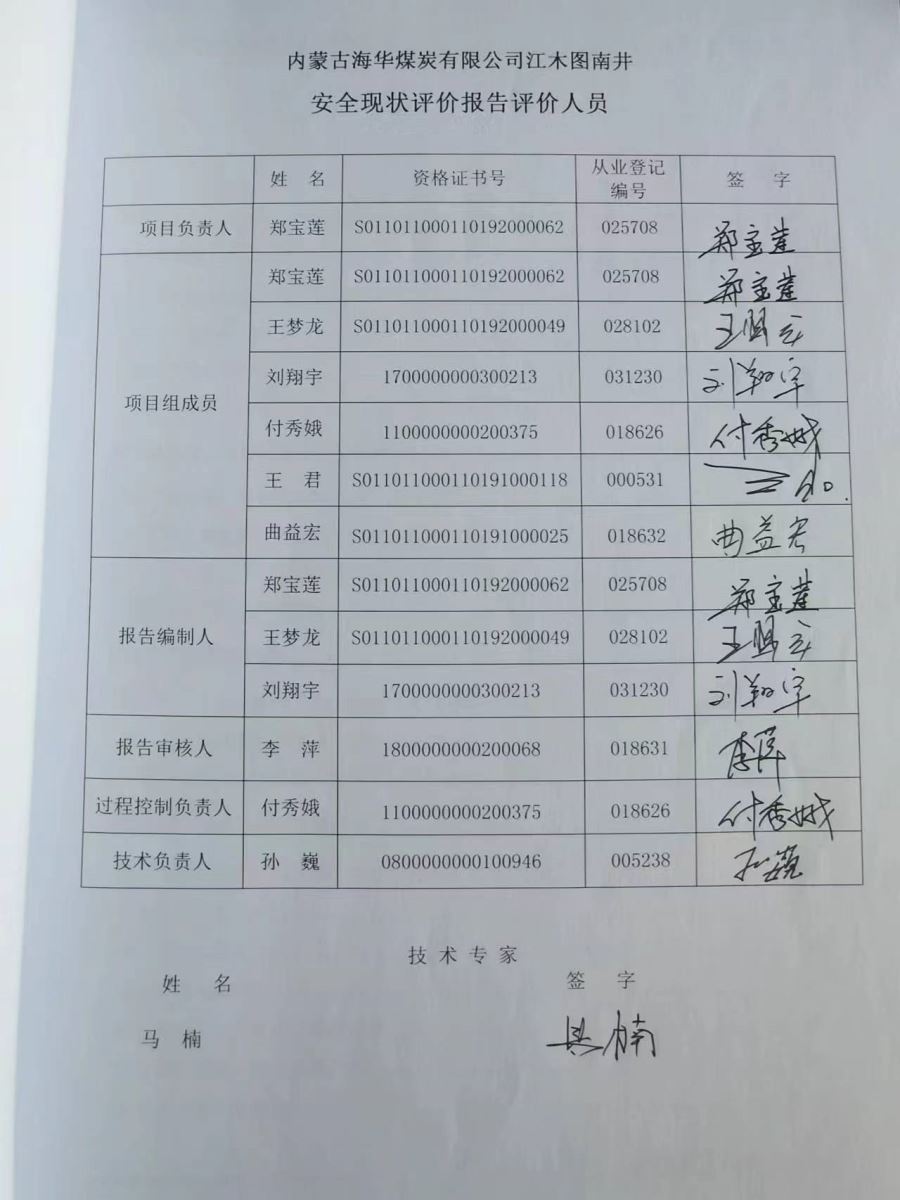 内蒙古海华煤炭有限公司江木图南井
安全现状评价报告评价人员
姓 名 资格证书号 从业登记编号 签 字
项目负责人 郑宝莲 S011011000110192000062 025708 郑宝莲
项目组成员 郑宝莲 S011011000110192000062 025708 郑宝莲
王梦龙 S011011000110192000049 028102 王梦龙
刘翔宇 1700000000300213 031230 刘翔宇
付秀娥 1100000000200375 018626 付秀娥
王 君 S011011000110191000118 000531
曲益宏 S011011000110191000025 018632 曲益宏
报告编制人 郑宝莲 S011011000110192000062 025708 郑宝莲
王梦龙 S011011000110192000049 028102 王梦龙
刘翔宇 1700000000300213 031230 刘翔宇
报告审核人 李 萍 1800000000200068 018631 李萍
过程控制负责人 付秀娥 1100000000200375 018626 付秀娥
技术负责人 孙 巍 0800000000100946 005238 孙巍
技 术 专 家
姓 名 签 字
马 楠 马楠